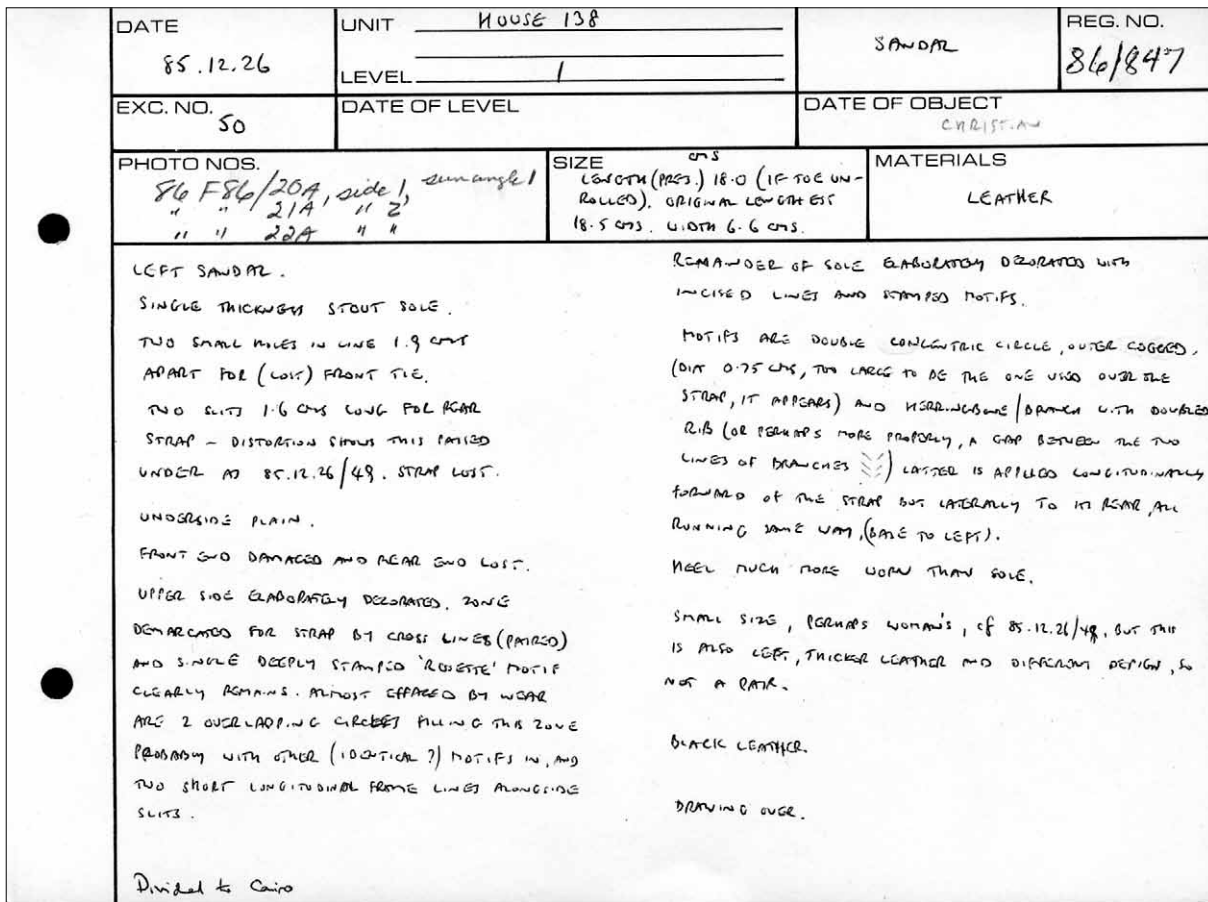 DATE
85.12.26
UNIT HOUSE 138
LEVEL 1
SANDAL
REG. NO.
86/847
EXC. NO. 50
DATE OF LEVEL
DATE OF OBJECT
CHRISTIAN
PHOTO NOS.
86 F86/20A, side 1, sun angle 1
" " 21A " 2,
" " 22A " "
SIZE cms
LENGTH (PRES.) 18.0 (IF TOE UN-
ROLLED). ORIGINAL LENGTH EST
18.5 cms. WIDTH 6.6 cms.
MATERIALS
LEATHER
LEFT SANDAL.
SINGLE THICKNESS STOUT SOLE.
TWO SMALL HOLES IN LINE 1.9 cms
APART FOR (LOST) FRONT TIE.
TWO SLITS 1.6 cms LONG FOR REAR
STRAP - DISTORTION SHOWS THIS PASSED
UNDER AS 85.12.26/49. STRAP LOST.
UNDERSIDE PLAIN.
FRONT END DAMAGED AND REAR END LOST.
UPPER SIDE ELABORATELY DECORATED. ZONE
DEMARCATED FOR STRAP BY CROSS LINES (PAIRED)
AND SINGLE DEEPLY STAMPED 'ROSETTE' MOTIF
CLEARLY REMAINS. ALMOST EFFACED BY WEAR
ARE 2 OVERLAPPING CIRCLES FILLING THIS ZONE
PROBABLY WITH OTHER (IDENTICAL?) MOTIFS IN, AND
TWO SHORT LONGITUDINAL FRAME LINES ALONGSIDE
SLITS.
Divided to Cairo
REMAINDER OF SOLE ELABORATELY DECORATED WITH
INCISED LINES AND STAMPED MOTIFS.
MOTIFS ARE DOUBLE CONCENTRIC CIRCLE, OUTER COGGED,
(DIA 0.75 cms, TOO LARGE TO BE THE ONE USED OVER THE
STRAP, IT APPEARS) AND HERRINGBONE/BRANCH WITH DOUBLED
RIB (OR PERHAPS MORE PROPERLY, A GAP BETWEEN THE TWO
LINES OF BRANCHES) LATTER IS APPLIED LONGITUDINALLY
FORWARD OF THE STRAP BUT LATERALLY TO ITS REAR, ALL
RUNNING SAME WAY, (BASE TO LEFT).
HEEL MUCH MORE WORN THAN SOLE.
SMALL SIZE, PERHAPS WOMAN'S, cf 85.12.26/49, BUT THIS
IS ALSO LEFT, THICKER LEATHER AND DIFFERENT DESIGN, SO
NOT A PAIR.
BLACK LEATHER.
DRAWING OVER.